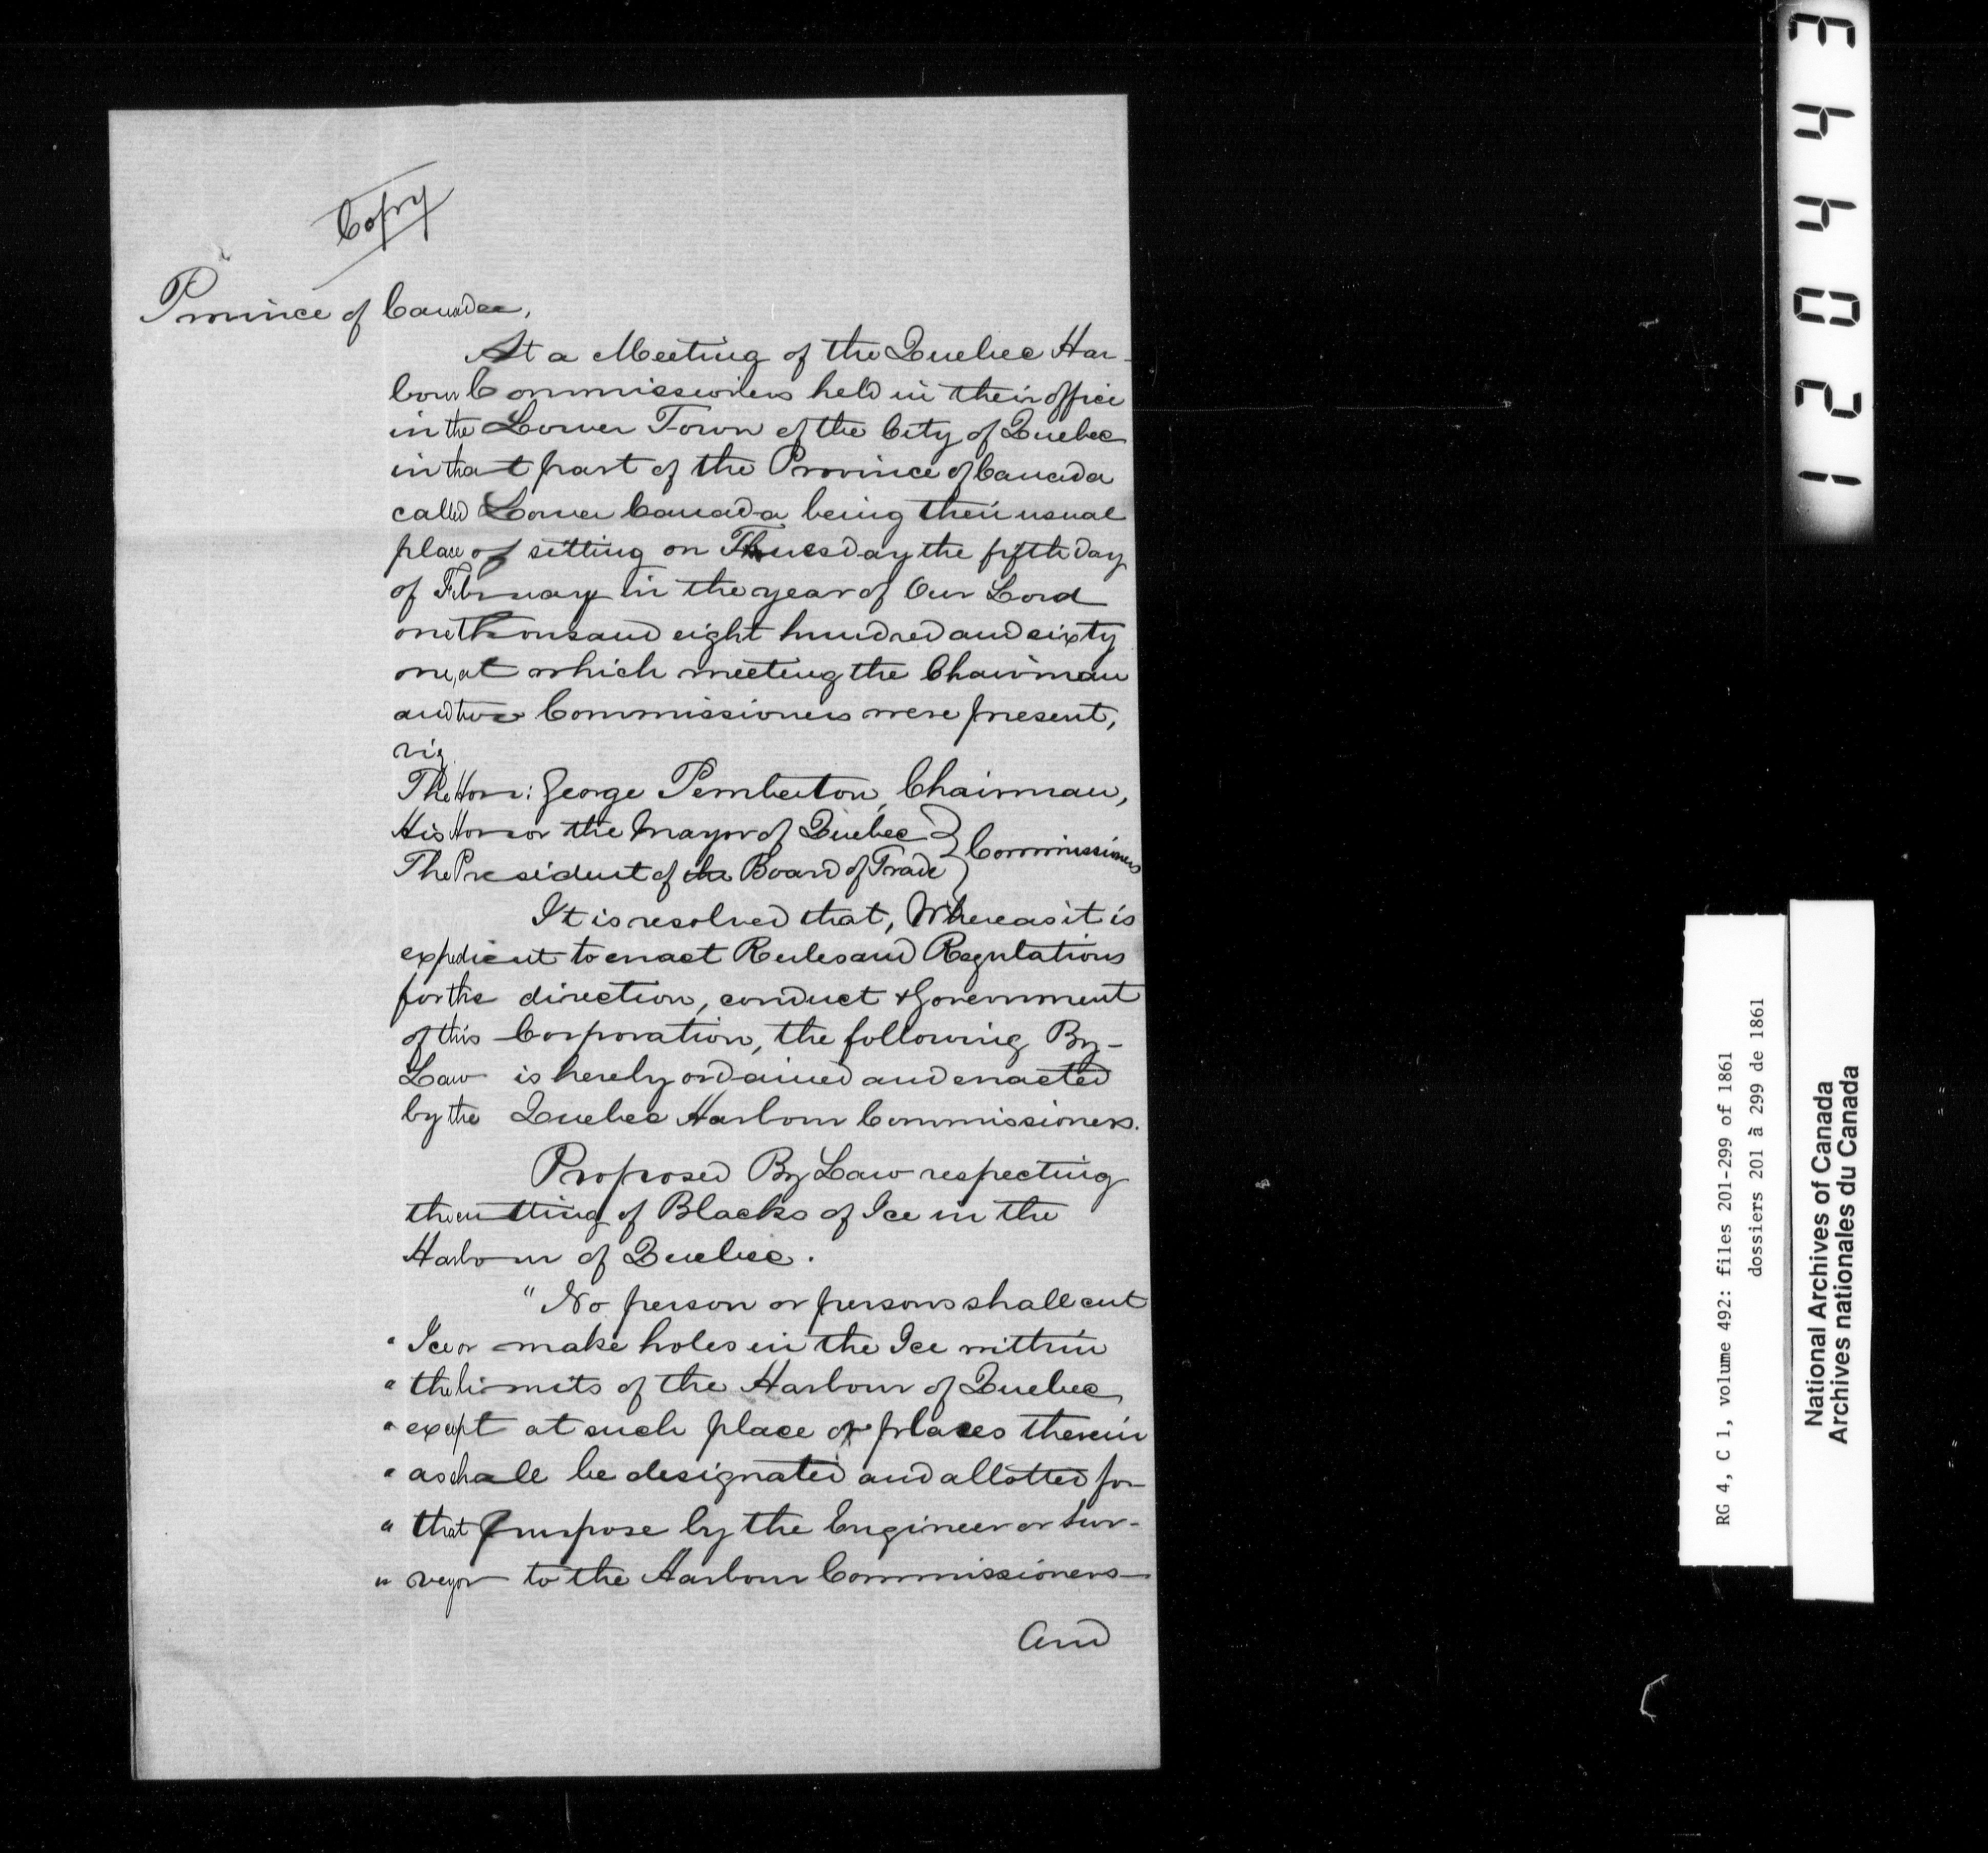 Copy
Province of Canada,
At a Meeting of the Quebec Har-
bour Commissioners held in their office
in the Lower Town of the City of Quebec
in that part of the Province of Canada
called Lower Canada being their usual
place of sitting on Thuesday the fifth day
of February in the year of Our Lord
one thousand eight hundred and sixty
one, at which meeting the Chairman
and two Commissioners were present,
viz
The Hon: George Pemberton, Chairman,
His Honor the Mayor of Quebec } Commissioners
The President of the Board of Trade
It is resolved that, Whereas it is
expedient to enact Rules and Regulations
for the direction, conduct & Government
of this Corporation, the following By-
Law is hereby ordained and enacted
by the Quebec Harbour Commissioners.
Proposed By Law respecting
the cutting of Blocks of Ice in the
Harbour of Quebec.
"No person or persons shall cut
" Ice or make holes in the Ice within
" the limits of the Harbour of Quebec,
" except at such place or places therein
" as shall be designated and allotted for
" that purpose by the Engineer or Sur-
" veyor to the Harbour Commissioners
And
1 2 0 4 4 3
RG 4, C 1, volume 492: files 201-299 of 1861
dossiers 201 à 299 de 1861
National Archives of Canada
Archives nationales du Canada